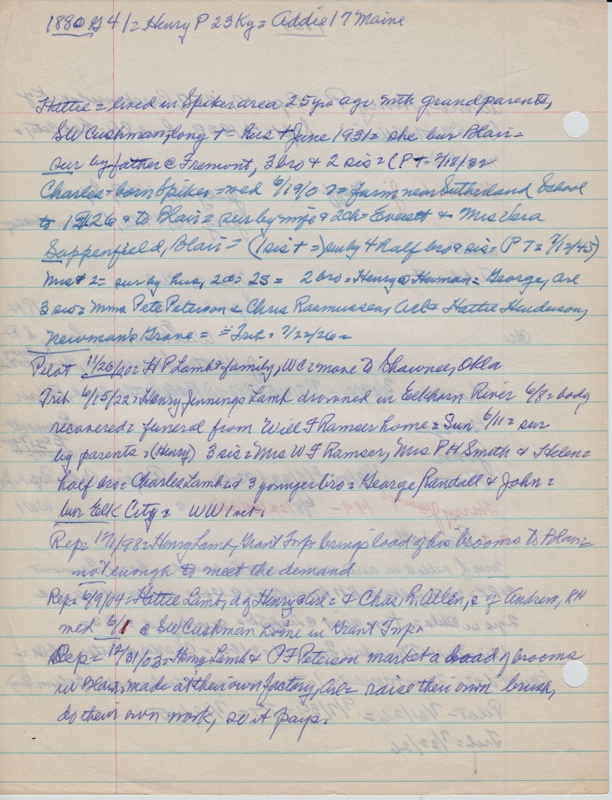 1880 G 41 = Henry P 23 Ky = Addie 17 Maine
Hattie = lived in Spiker area 25 yrs ago with grandparents,
SW Cushman, long t = Aus t June 1931 = she bur Blair =
sur by father @ Fremont, 3 bro & 2 sis = (PT = 7/18/32
Charles = born Spiker = med 6/19/07 = farm near Sutherland School
to 1926 & to Blair = sur by wife & 2 ch = Everett & Mrs Vera
Sappenfield, Blair = (1 sis t =) sur by 4 half bro & sis = (PT = 7/12/45)
Mrs # 2 = sur by hus, 2 d = 2 S = 2 bro = Henry @ Herman = George, Arl
3 sis = Mmes Pete Peterson & Chris Rasmussen, Arl & Hattie Henderson,
Newman's Grove = = Trib = 7/22/26 =
Pilot 11/26/20 = H P Lamb & family, WC = move to Shawnee, Okla
Trib 6/15/22 = Henry Jennings Lamb drowned in Elkhorn River 6/8 = body
recovered = funeral from Will F Ramser home = Sun 6/11 = sur
by parents = (Henry) 3 sis = Mrs W F Ramser, Mrs P H Smith & Helen =
half bro = Charles Lamb & 3 younger bro = George, Randall & John =
bur Elk City = WW 1 vet.
Rep = 1/98 = Henry Lamb, Grant Twp brings load of his brooms to Blair =
not enough to meet the demand
Rep = 6/9/04 = Hattie Lamb, d of Henry @ Arl = & Chas. R. Allen, s of Andrew, RH
med 6/1 @ SW Cushman home in Grant Twp.
Rep = 12/31/03 = Henry Lamb & P F Peterson market a load of brooms
in Blair, made at their own factory, Arl = raise their own brush,
do their own work, so it pays.